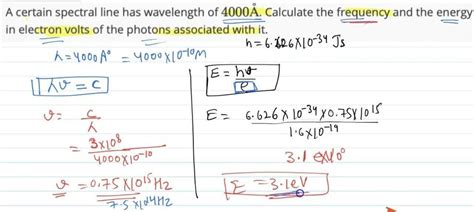 A certain spectral line has wavelength of 4000Å. Calculate the frequency and the energy
in electron volts of the photons associated with it.
h = 6.626×10⁻³⁴ Js
λ = 4000A° = 4000×10⁻¹⁰m
λν = c
ν = c/λ
= 3×10⁸ / 4000×10⁻¹⁰
ν = 0.75×10¹⁵Hz
7.5×10¹⁴Hz
E = hν/e
E = 6.626×10⁻³⁴×0.75×10¹⁵ / 1.6×10⁻¹⁹
E = 3.1eV